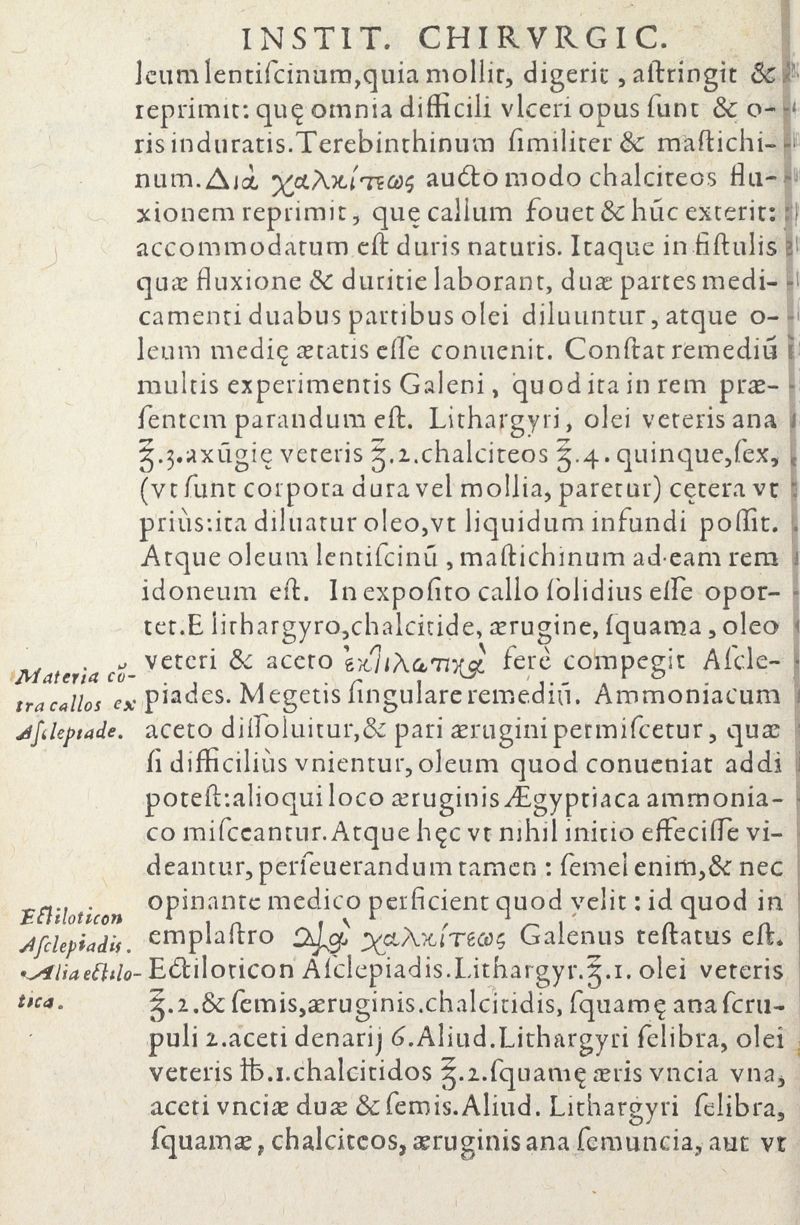 INSTIT. CHIRVRGIC.
leum lentiſcinum,quia mollit, digerit , aſtringit &
reprimit: quę omnia difficili vlceri opus ſunt & o-
ris induratis.Terebinthinum ſimiliter & maſtichi-
num.Διὰ χαλκίτεως aucto modo chalciteos flu-
xionem reprimit, quę callum fouet & hûc exterit:
accommodatum eſt duris naturis. Itaque in fiſtulis
quæ fluxione & duritie laborant, duæ partes medi-
camenti duabus partibus olei diluuntur, atque o-
leum medię ætatis eſſe conuenit. Conſtat remediū
multis experimentis Galeni, quod ita in rem præ-
ſentem parandum eſt. Lithargyri, olei veteris ana
℥.3.axūgię veteris ℥.2.chalciteos ℥.4. quinque,ſex,
(vt ſunt corpora dura vel mollia, paretur) cętera vt
priùs:ita diluatur oleo,vt liquidum infundi poſſit.
Atque oleum lentiſcinū , maſtichinum ad eam rem
idoneum eſt. In expoſito callo ſolidius eſſe opor-
tet.E lithargyro,chalcitide, ærugine, ſquama , oleo
veteri & aceto ἐκτιλωτικὰ ferè compegit Aſcle-
Materia cō-
tra callos ex
Aſclepiade.
piades. Megetis ſingulare remediū. Ammoniacum
aceto diſſoluitur,& pari ærugini permiſcetur, quæ
ſi difficiliùs vnientur, oleum quod conueniat addi
poteſt:alioqui loco æruginis Ægyptiaca ammonia-
co miſceantur.Atque hęc vt nihil initio effeciſſe vi-
deantur, perſeuerandum tamen : ſemel enim,& nec
opinante medico perficient quod velit : id quod in
emplaſtro Διὰ χαλκίτεως Galenus teſtatus eſt.
Ectiloticon
Aſclepiadis.
Alia ectilo-
tica.
Ectiloticon Aſclepiadis.Lithargyr.℥.1. olei veteris
℥.2.& ſemis,æruginis.chalcitidis, ſquamę ana ſcru-
puli 2.aceti denarij 6.Aliud.Lithargyri ſelibra, olei
veteris ℔.1.chalcitidos ℥.2.ſquamę æris vncia vna,
aceti vnciæ duæ & ſemis.Aliud. Lithargyri ſelibra,
ſquamæ, chalciteos, æruginis ana ſemuncia, aut vt